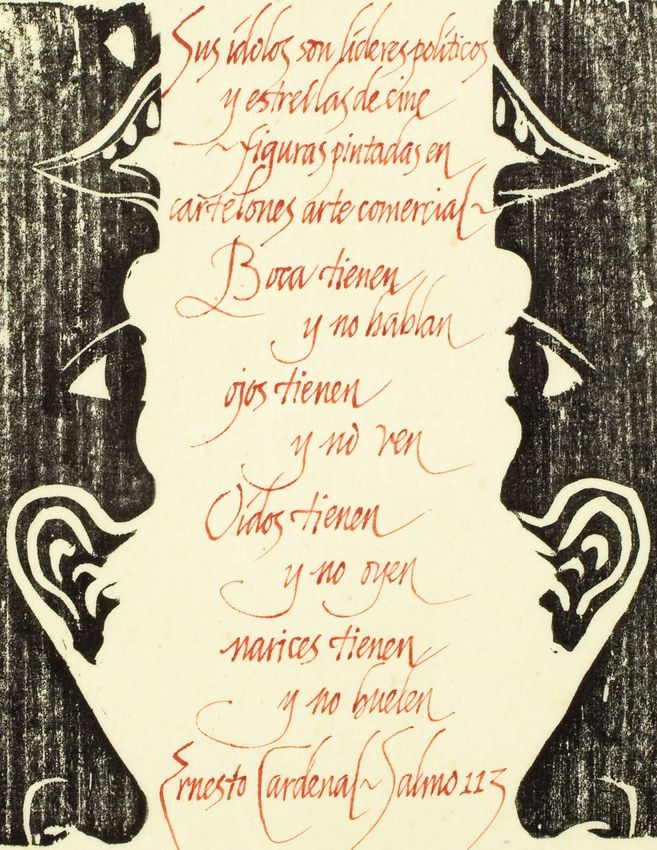 Sus ídolos son líderes políticos
y estrellas de cine
~figuras pintadas en
cartelones arte comercial~
Boca tienen
y no hablan
ojos tienen
y no ven
Oídos tienen
y no oyen
narices tienen
y no huelen
Ernesto Cardenal~Salmo 113